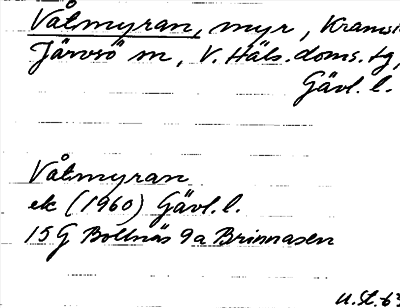 Våtmyran, myr, Kramst
Järvsö sn, V. Häls. doms. tg,
Gävl. l.
Våtmyran
ek (1960) Gävl. l.
15G Bollnäs 9a Brinnåsen